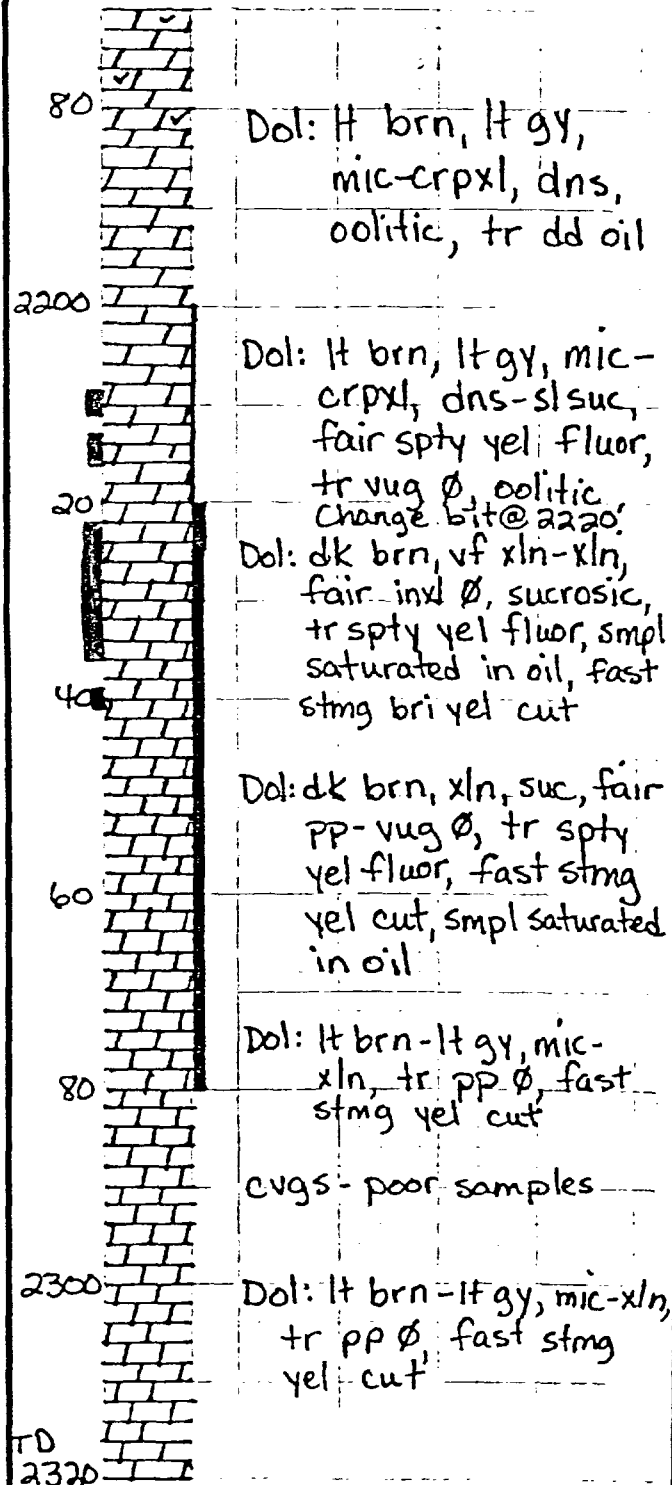 80
Dol: lt brn, lt gy,
mic-crpxl, dns,
oolitic, tr dd oil
2200
Dol: lt brn, lt gy, mic-
crpxl, dns-sl suc,
fair spty yel fluor,
tr vug Ø, oolitic
20
Change bit@ 2220'
Dol: dk brn, vf xln-xln,
fair inxl Ø, sucrosic,
tr spty yel fluor, smpl
saturated in oil, fast
40
stmg bri yel cut
Dol: dk brn, xln, suc, fair
pp-vug Ø, tr spty
yel fluor, fast stmg
60
yel cut, smpl saturated
in oil
Dol: lt brn-lt gy, mic-
xln, tr pp Ø, fast
80
stmg yel cut
cvgs - poor samples
2300
Dol: lt brn-lt gy, mic-xln,
tr pp Ø, fast stmg
yel cut
TD
2320